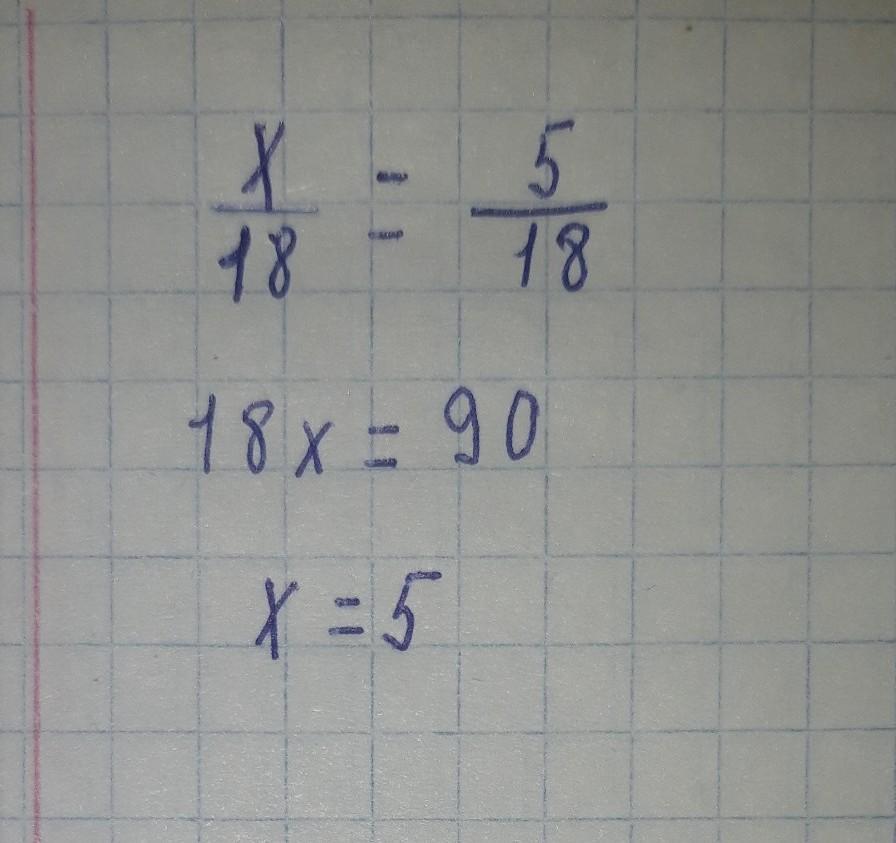 x/18 = 5/18
18x = 90
x = 5